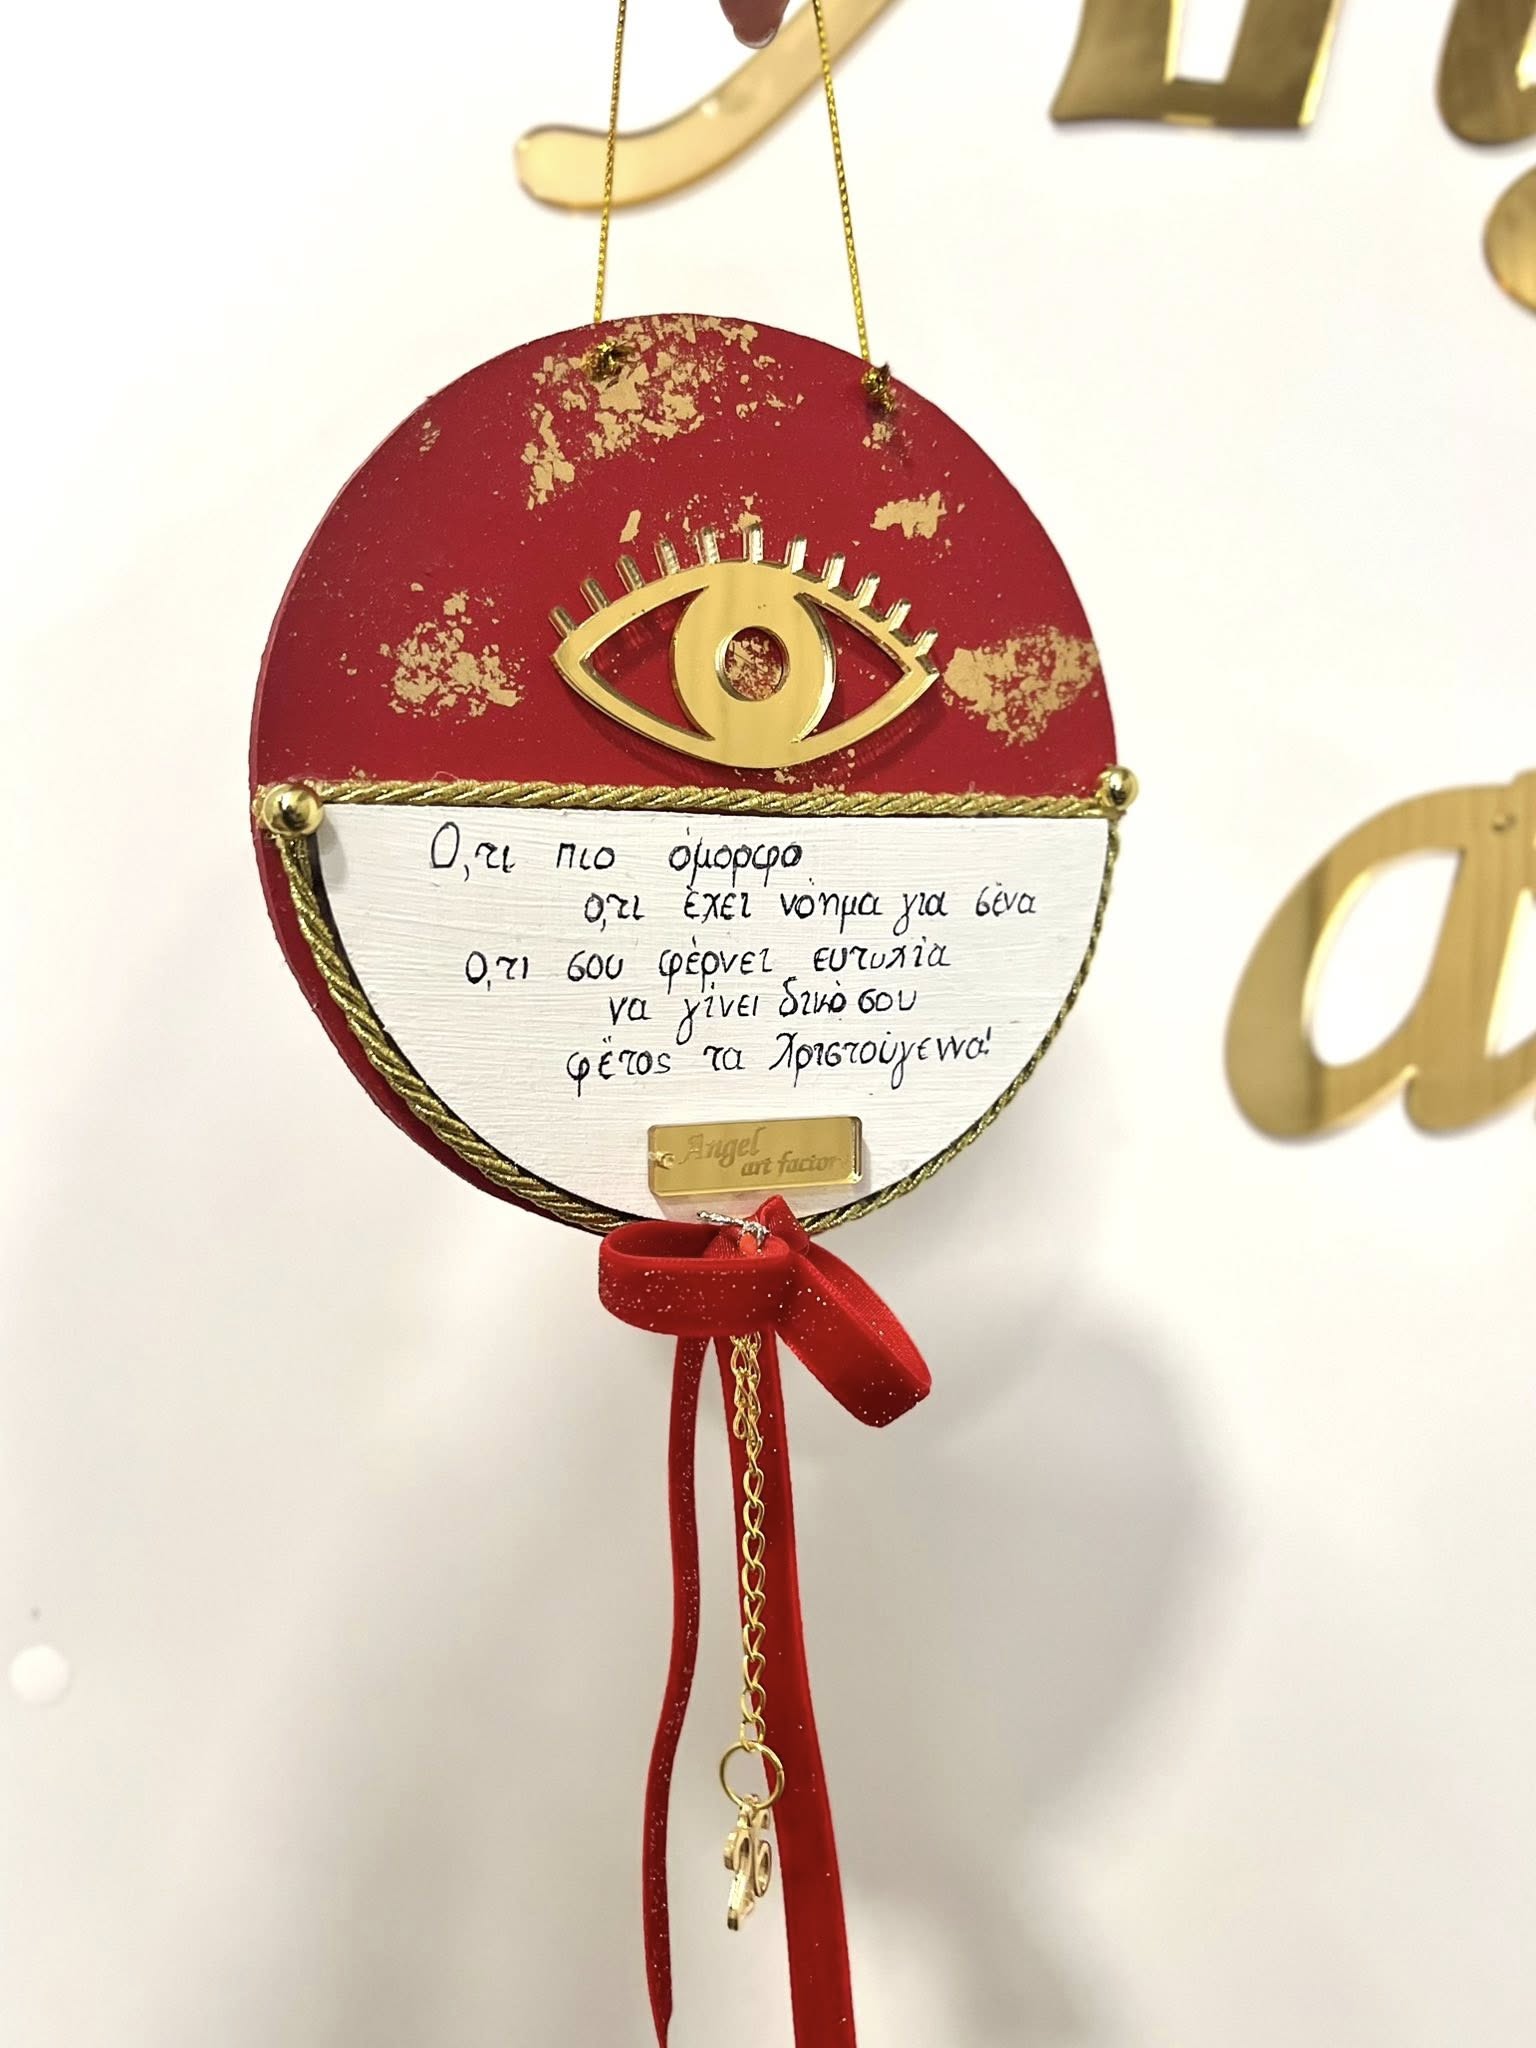 Ό,τι πιο όμορφο
ό,τι έχει νόημα για σένα
ό,τι σου φέρνει ευτυχία
να γίνει δικό σου
φέτος τα Χριστούγεννα!
Angel
art factory